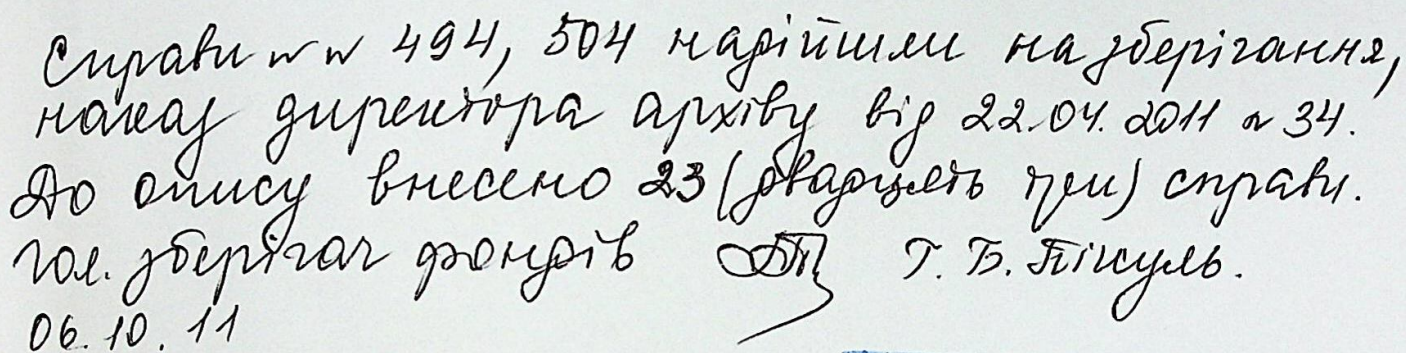 Справи №№ 494, 504 надійшли на зберігання,
наказ директора архіву від 22.04.2011 № 34.
До опису внесено 23 (двадцять три) справи.
Гол. зберігач фондів Г. Б. Пікуль.
06.10.11